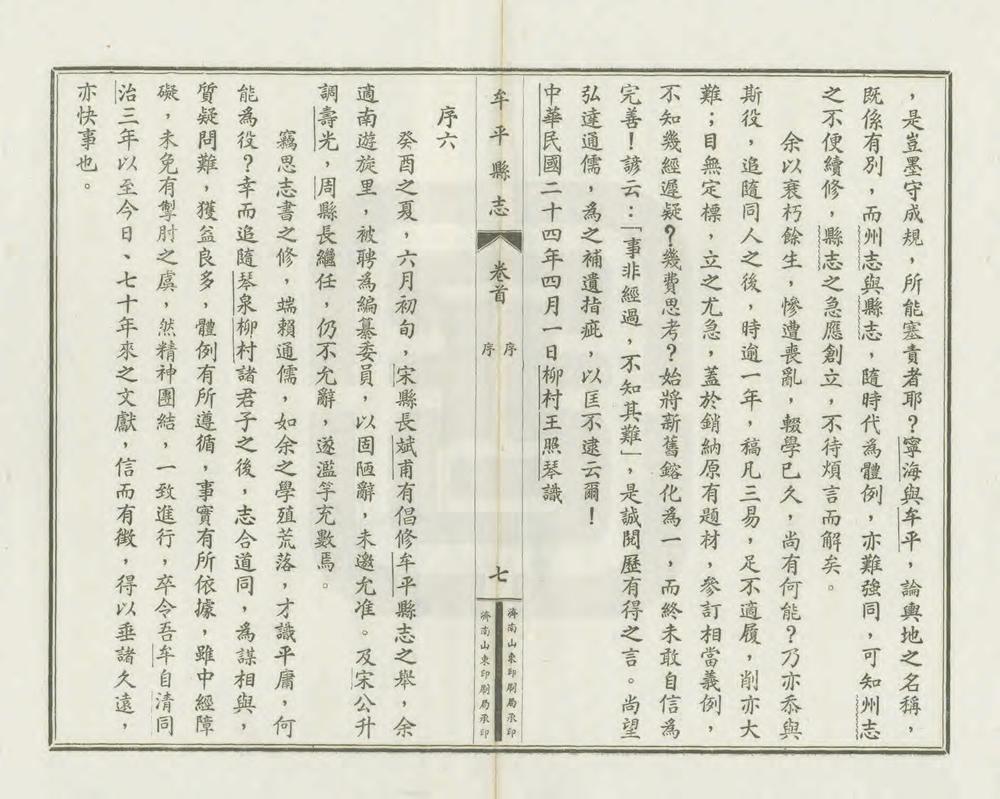 ，是豈墨守成規，所能塞責者耶？寧海與牟平，論輿地之名稱，
既係有別，而州志與縣志，隨時代為體例，亦難強同，可知州志
之不便續修，縣志之急應創立，不待煩言而解矣。
余以衰朽餘生，慘遭喪亂，輟學已久，尚有何能？乃亦忝與
斯役，追隨同人之後，時逾一年，稿凡三易，足不適履，削亦大
難；目無定標，立之尤急，蓋於銷納原有題材，參訂相當義例，
不知幾經遲疑？幾費思考？始將新舊鎔化為一，而終未敢自信為
完善！諺云：「事非經過，不知其難」，是誠閱歷有得之言。尚望
弘達通儒，為之補遺指疵，以匡不逮云爾！
中華民國二十四年四月一日柳村王照琴識
牟平縣志
卷首
序
序
七
濟南山東印刷局承印
濟南山東印刷局承印
序六
癸酉之夏，六月初旬，宋縣長斌甫有倡修牟平縣志之舉，余
適南遊旋里，被聘為編纂委員，以固陋辭，未邀允准。及宋公升
調壽光，周縣長繼任，仍不允辭，遂濫竽充數焉。
竊思志書之修，端賴通儒，如余之學殖荒落，才識平庸，何
能為役？幸而追隨琴泉柳村諸君子之後，志合道同，為謀相與，
質疑問難，獲益良多，體例有所遵循，事實有所依據，雖中經障
礙，未免有掣肘之虞，然精神團結，一致進行，卒令吾牟自清同
治三年以至今日、七十年來之文獻，信而有徵，得以垂諸久遠，
亦快事也。